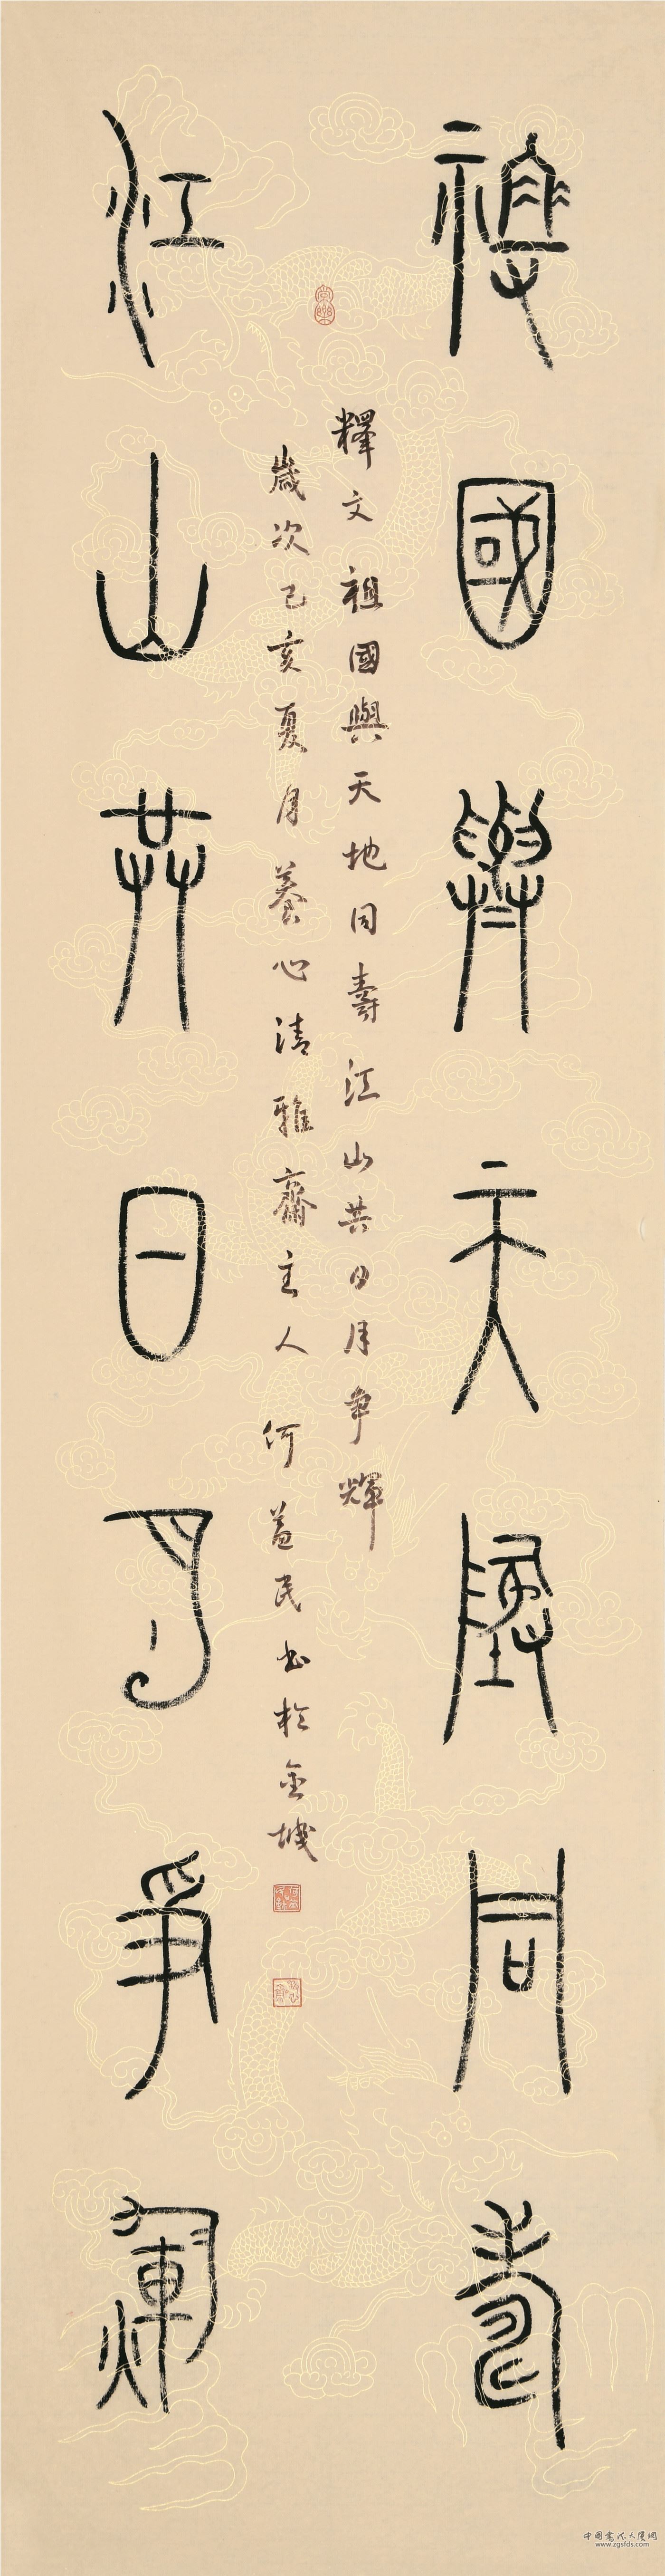 祖國與天地同壽
釋文祖國與天地同壽江山共日月争輝
歲次己亥夏月養心清雅齋主人何益民书於金城
江山共日月爭輝
中国书法人展网
www.zgsfds.com